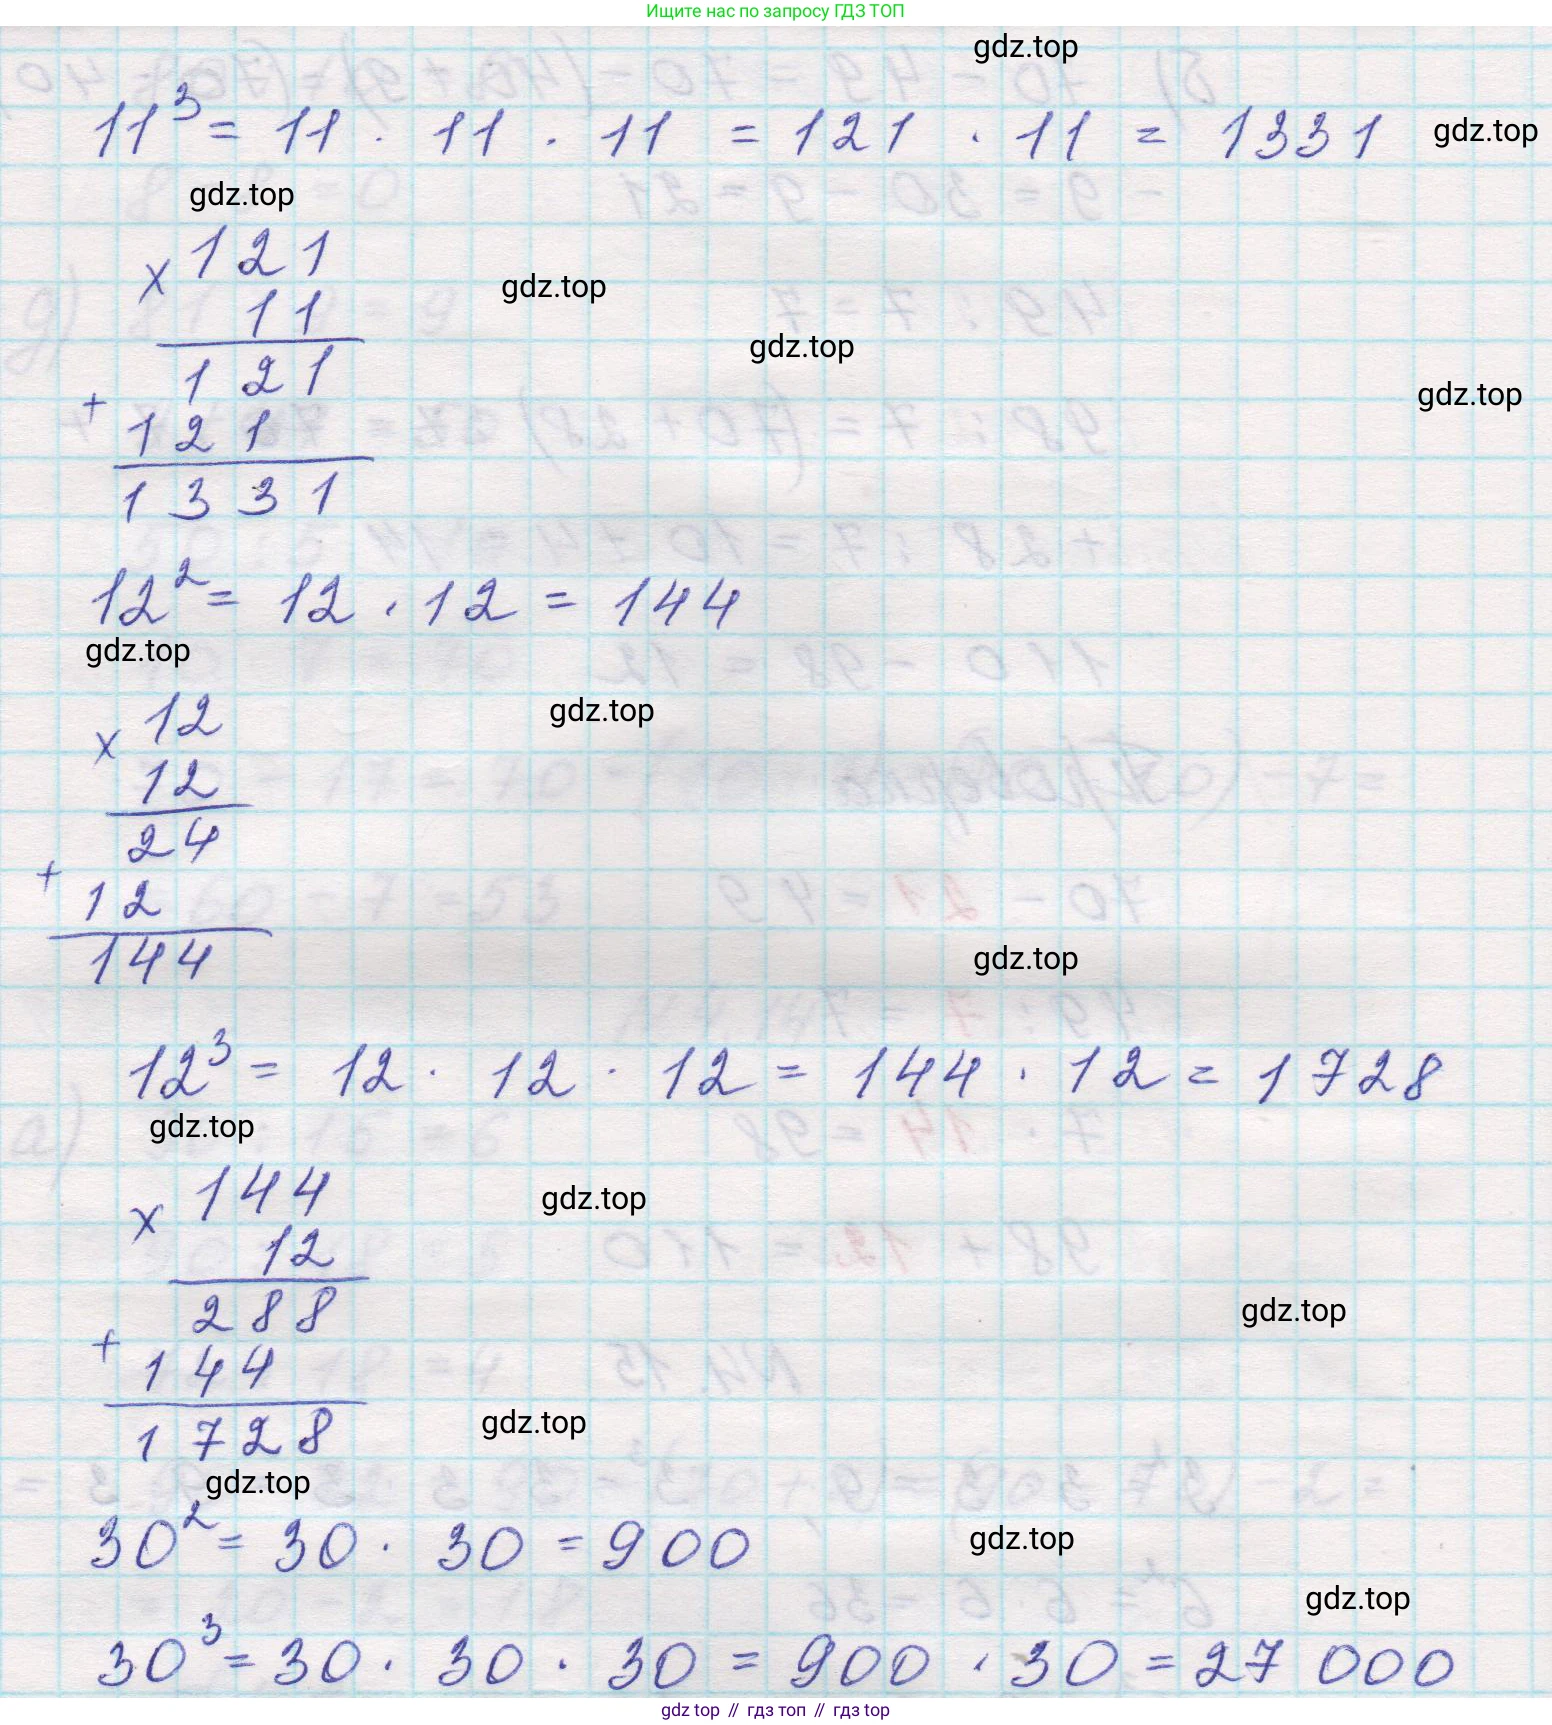 Ищите нас по запросу ГДЗ ТОП
gdz.top
11³ = 11 · 11 · 11 = 121 · 11 = 1331
gdz.top
gdz.top
× 121
gdz.top
11
gdz.top
121
gdz.top
+ 121
1331
12² = 12 · 12 = 144
gdz.top
gdz.top
× 12
12
24
+ 12
144
gdz.top
12³ = 12 · 12 · 12 = 144 · 12 = 1728
gdz.top
× 144
gdz.top
12
288
gdz.top
+ 144
1728
gdz.top
gdz.top
30² = 30 · 30 = 900
gdz.top
gdz.top
30³ = 30 · 30 · 30 = 900 · 30 = 27 000
gdz top // гдз топ // гдз top